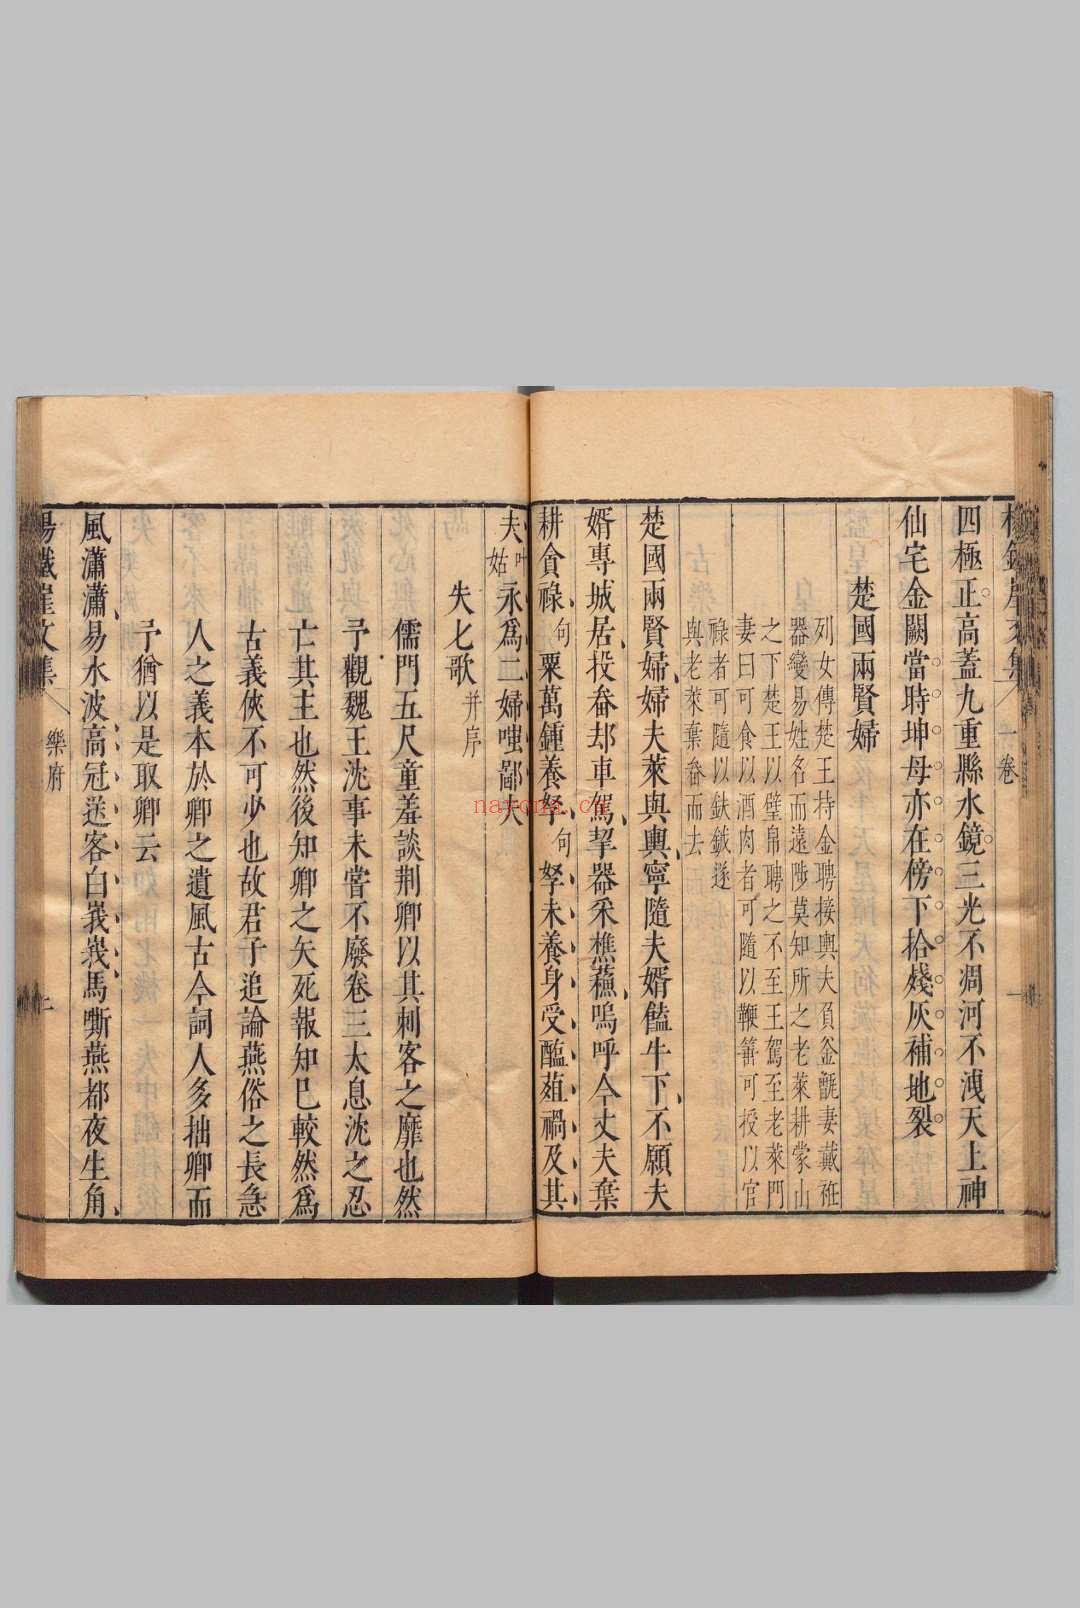 四極正高蓋九重縣水鏡三光不凋河不洩天上神
仙宅金闕當時坤母亦在傍下拾殘灰補地裂
楚國兩賢婦
列女傳楚王持金聘接輿夫負釜甑妻戴袵
器變易姓名而遠陟莫知所之老萊耕蒙山
之下楚王以璧帛聘之不至王駕至老萊門
妻曰可食以酒肉者可隨以鞭箠可授以官
祿者可隨以鈇鉞遂
與老萊棄畚而去
楚國兩賢婦婦夫萊與輿寧隨夫婿饁牛下不願夫
婿專城居投畚却車駕挈器采樵蘓嗚呼今丈夫棄
耕貪祿句粟萬鍾養孥句孥未養身受醢葅禍及其
夫叶姑永爲二婦嗤鄙夫
失匕歌并序
儒門五尺童羞談荆卿以其刺客之靡也然
予觀魏王沈事未嘗不廢卷三太息沈之忍
亡其主也然後知卿之矢死報知已較然爲
古義俠不可少也故君子追論燕俗之長急
人之義本於卿之遺風古今詞人多拙卿而
予猶以是取卿云
風瀟瀟易水波高冠送客白峩峩馬嘶燕都夜生角
楊鐵崖文集
樂府
上
一卷
一
nayona.cn